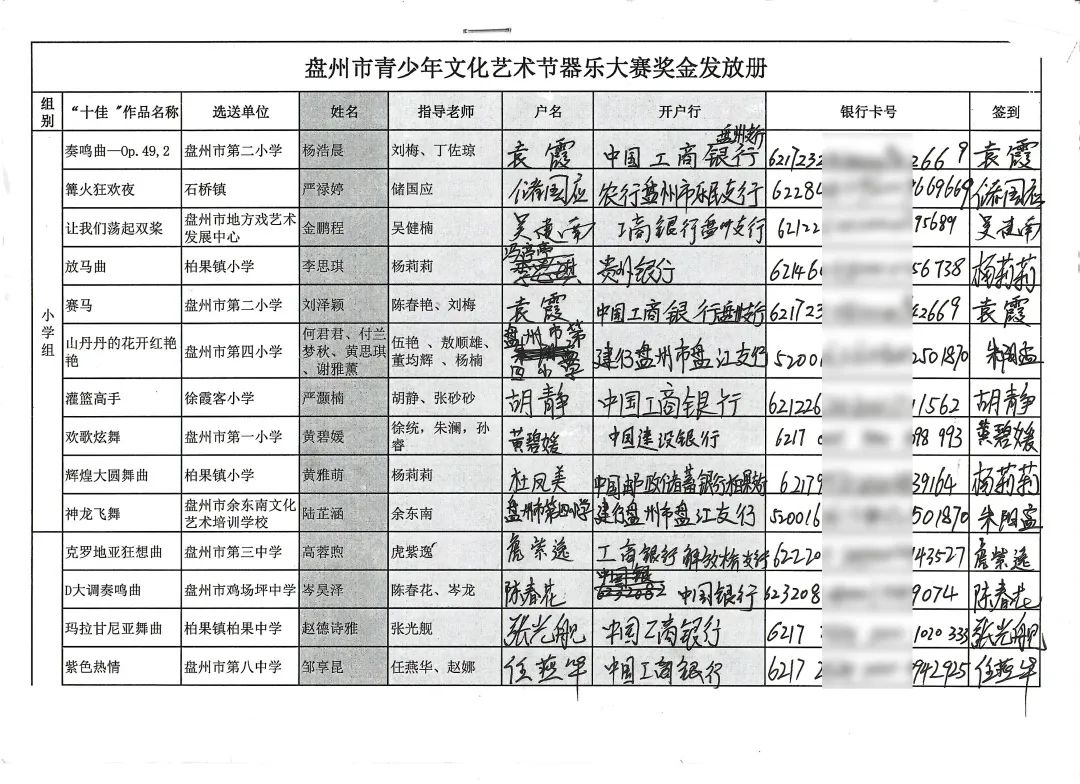 盘州市青少年文化艺术节器乐大赛奖金发放册
组别 “十佳"作品名称 选送单位 姓名 指导老师 户名 开户行 银行卡号 签到
小学组
奏鸣曲—Op.49,2 盘州市第二小学 杨浩晨 刘梅、丁佐琼 袁霞 中国工商银行盘州支行 6217232 2669 袁霞
篝火狂欢夜 石桥镇 严禄婷 储国应 储国应 农行盘州市乐民支行 62284 669669 储国应
让我们荡起双桨 盘州市地方戏艺术发展中心 金鹏程 吴健楠 吴建南 工商银行盘州支行 62122 95689 吴建南
放马曲 柏果镇小学 李思琪 杨莉莉 贵州银行 62146 56738 杨莉莉
赛马 盘州市第二小学 刘泽颖 陈春艳、刘梅 袁霞 中国工商银行盘州支行 621723 2669 袁霞
山丹丹的花开红艳艳 盘州市第四小学 何君君、付兰梦秋、黄思琪、谢雅薰 伍艳、敖顺雄、董均辉、杨楠 盘州市第四小学 建行盘州市盘江支行 52001 2501870
灌篮高手 徐霞客小学 严灏楠 胡静、张砂砂 胡静 中国工商银行 621226 11562 胡静
欢歌炫舞 盘州市第一小学 黄碧媛 徐统，朱澜，孙睿 黄碧媛 中国建设银行 6217 0 98 993 黄碧媛
辉煌大圆舞曲 柏果镇小学 黄雅萌 杨莉莉 杜凤美 中国邮政储蓄银行柏果支行 62179 39164 杨莉莉
神龙飞舞 盘州市余东南文化艺术培训学校 陆芷涵 余东南 盘州市第四小学 建行盘州市盘江支行 520016 501870
克罗地亚狂想曲 盘州市第三中学 高蓉煦 虎紫逸 虎紫逸 工商银行解放桥支行 62220 43527 虎紫逸
D大调奏鸣曲 盘州市鸡场坪中学 岑昊泽 陈春花、岑龙 陈春花 中国银行 623208 9074 陈春花
玛拉甘尼亚舞曲 柏果镇柏果中学 赵德诗雅 张光舰 张光舰 中国工商银行 6217 1020 333 张光舰
紫色热情 盘州市第八中学 邹享昆 任燕华、赵娜 任燕华 中国工商银行 6217 2 942925 任燕华